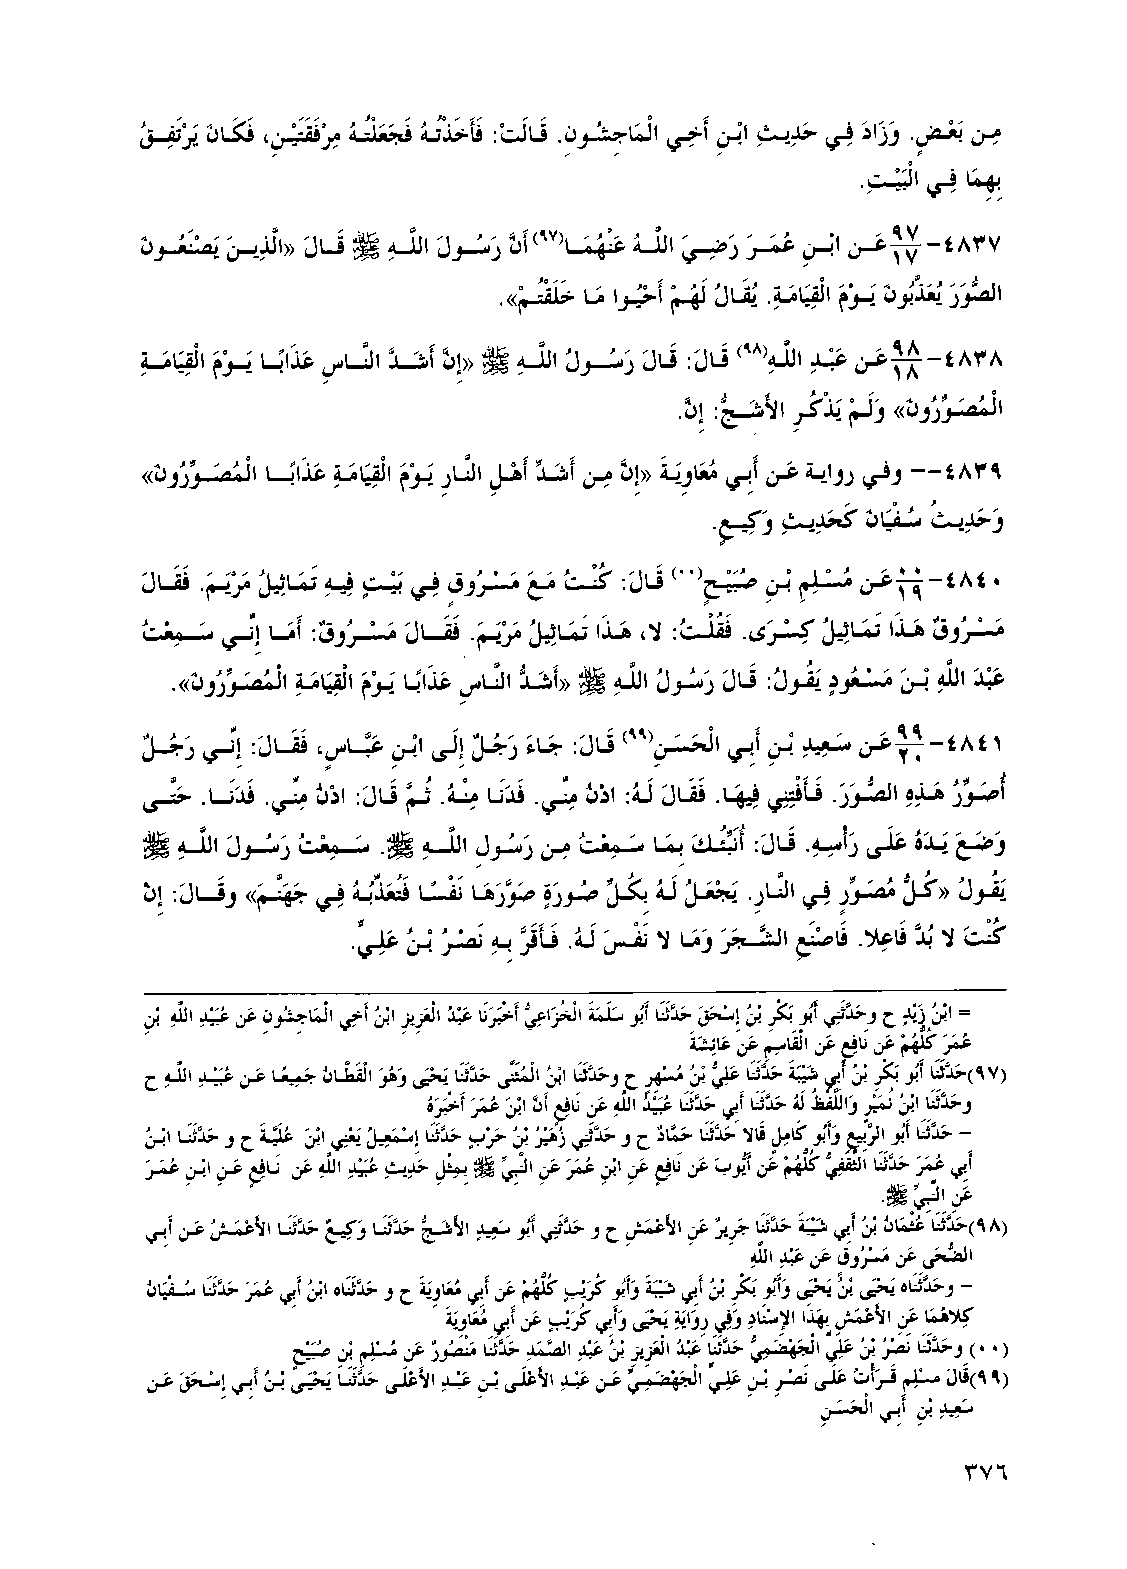 مِن بَعْضٍ. وَزَادَ فِي حَدِيثِ ابْنِ أَخِي الْمَاجِشُونِ. قَالَتْ: فَأَخَذْتُهُ فَجَعَلْتُهُ مِرْفَقَتَيْنِ، فَكَانَ يَرْتَفِقُ
بِهِمَا فِي الْبَيْتِ.
٤٨٣٧- ٩٧/١٧ عَن ابْنِ عُمَرَ رَضِيَ اللَّهُ عَنْهُمَا(٩٧) أَنَّ رَسُولَ اللَّهِ ﷺ قَالَ «الَّذِينَ يَصْنَعُونَ
الصُّوَرَ يُعَذَّبُونَ يَوْمَ الْقِيَامَةِ. يُقَالُ لَهُمْ أَحْيُوا مَا خَلَقْتُمْ».
٤٨٣٨- ٩٨/١٨ عَن عَبْدِ اللَّهِ(٩٨) قَالَ: قَالَ رَسُولُ اللَّهِ ﷺ «إِنَّ أَشَدَّ النَّاسِ عَذَابًا يَوْمَ الْقِيَامَةِ
الْمُصَوِّرُونَ» وَلَمْ يَذْكُرِ الأَشَجُّ: إِنَّ.
٤٨٣٩-- وفي رواية عَن أَبِي مُعَاوِيَةَ «إِنَّ مِن أَشَدِّ أَهْلِ النَّارِ يَوْمَ الْقِيَامَةِ عَذَابًا الْمُصَوِّرُونَ»
وَحَدِيثُ سُفْيَانَ كَحَدِيثِ وَكِيعٍ.
٤٨٤٠- ٠٠/١٩ عَن مُسْلِمِ بْنِ صُبَيْحٍ(٠٠) قَالَ: كُنْتُ مَعَ مَسْرُوقٍ فِي بَيْتٍ فِيهِ تَمَاثِيلُ مَرْيَمَ. فَقَالَ
مَسْرُوقٌ هَذَا تَمَاثِيلُ كِسْرَى. فَقُلْتُ: لا، هَذَا تَمَاثِيلُ مَرْيَمَ. فَقَالَ مَسْرُوقٌ: أَمَا إِنِّي سَمِعْتُ
عَبْدَ اللَّهِ بْنَ مَسْعُودٍ يَقُولُ: قَالَ رَسُولُ اللَّهِ ﷺ «أَشَدُّ النَّاسِ عَذَابًا يَوْمَ الْقِيَامَةِ الْمُصَوِّرُونَ».
٤٨٤١- ٩٩/٢٠ عَن سَعِيدِ بْنِ أَبِي الْحَسَنِ(٩٩) قَالَ: جَاءَ رَجُلٌ إِلَى ابْنِ عَبَّاسٍ، فَقَالَ: إِنِّي رَجُلٌ
أُصَوِّرُ هَذِهِ الصُّوَرَ. فَأَفْتِنِي فِيهَا. فَقَالَ لَهُ: ادْنُ مِنِّي. فَدَنَا مِنْهُ. ثُمَّ قَالَ: ادْنُ مِنِّي. فَدَنَا. حَتَّى
وَضَعَ يَدَهُ عَلَى رَأْسِهِ. قَالَ: أُنَبِّئُكَ بِمَا سَمِعْتُ مِن رَسُولِ اللَّهِ ﷺ. سَمِعْتُ رَسُولَ اللَّهِ ﷺ
يَقُولُ «كُلُّ مُصَوِّرٍ فِي النَّارِ. يَجْعَلُ لَهُ بِكُلِّ صُورَةٍ صَوَّرَهَا نَفْسًا فَتُعَذِّبُهُ فِي جَهَنَّمَ» وقَالَ: إِنْ
كُنْتَ لا بُدَّ فَاعِلا. فَاصْنَعِ الشَّجَرَ وَمَا لا نَفْسَ لَهُ. فَأَقَرَّ بِهِ نَصْرُ بْنُ عَلِيٍّ.
= ابْنُ زَيْدٍ ح وحَدَّثَنِي أَبُو بَكْرِ بْنُ إِسْحَقَ حَدَّثَنَا أَبُو سَلَمَةَ الْخُزَاعِيُّ أَخْبَرَنَا عَبْدُ الْعَزِيزِ ابْنُ أَخِي الْمَاجِشُونِ عَن عُبَيْدِ اللَّهِ بْنِ
عُمَرَ كُلُّهُمْ عَن نَافِعٍ عَن الْقَاسِمِ عَن عَائِشَةَ
(٩٧)حَدَّثَنَا أَبُو بَكْرِ بْنُ أَبِي شَيْبَةَ حَدَّثَنَا عَلِيُّ بْنُ مُسْهِرٍ ح وحَدَّثَنَا ابْنُ الْمُثَنَّى حَدَّثَنَا يَحْيَى وَهُوَ الْقَطَّانُ جَمِيعًا عَن عُبَيْدِ اللَّهِ ح
وحَدَّثَنَا ابْنُ نُمَيْرٍ وَاللَّفْظُ لَهُ حَدَّثَنَا أَبِي حَدَّثَنَا عُبَيْدُ اللَّهِ عَن نَافِعٍ أَنَّ ابْنَ عُمَرَ أَخْبَرَهُ
- حَدَّثَنَا أَبُو الرَّبِيعِ وَأَبُو كَامِلٍ قَالا حَدَّثَنَا حَمَّادٌ ح و حَدَّثَنِي زُهَيْرُ بْنُ حَرْبٍ حَدَّثَنَا إِسْمَعِيلُ يَعْنِي ابْنَ عُلَيَّةَ ح و حَدَّثَنَا ابْنُ
أَبِي عُمَرَ حَدَّثَنَا الثَّقَفِيُّ كُلُّهُمْ عَن أَيُّوبَ عَن نَافِعٍ عَن ابْنِ عُمَرَ عَن النَّبِيِّ ﷺ بِمِثْلِ حَدِيثِ عُبَيْدِ اللَّهِ عَن نَافِعٍ عَن ابْنِ عُمَرَ
عَن النَّبِيِّ ﷺ.
(٩٨)حَدَّثَنَا عُثْمَانُ بْنُ أَبِي شَيْبَةَ حَدَّثَنَا جَرِيرٌ عَن الأَعْمَشِ ح و حَدَّثَنِي أَبُو سَعِيدٍ الأَشَجُّ حَدَّثَنَا وَكِيعٌ حَدَّثَنَا الأَعْمَشُ عَن أَبِي
الضُّحَى عَن مَسْرُوقٍ عَن عَبْدِ اللَّهِ
- وحَدَّثَنَاه يَحْيَى بْنُ يَحْيَى وَأَبُو بَكْرِ بْنُ أَبِي شَيْبَةَ وَأَبُو كُرَيْبٍ كُلُّهُمْ عَن أَبِي مُعَاوِيَةَ ح و حَدَّثَنَاه ابْنُ أَبِي عُمَرَ حَدَّثَنَا سُفْيَانُ
كِلاهُمَا عَن الأَعْمَشِ بِهَذَا الإِسْنَادِ وَفِي رِوَايَةِ يَحْيَى وَأَبِي كُرَيْبٍ عَن أَبِي مُعَاوِيَةَ
(٠٠) وحَدَّثَنَا نَصْرُ بْنُ عَلِيٍّ الْجَهْضَمِيُّ حَدَّثَنَا عَبْدُ الْعَزِيزِ بْنُ عَبْدِ الصَّمَدِ حَدَّثَنَا مَنْصُورٌ عَن مُسْلِمِ بْنِ صُبَيْحٍ
(٩٩)قَالَ مسْلِم قَرَأْتُ عَلَى نَصْرِ بْنِ عَلِيٍّ الْجَهْضَمِيِّ عَن عَبْدِ الأَعْلَى بْنِ عَبْدِ الأَعْلَى حَدَّثَنَا يَحْيَى بْنُ أَبِي إِسْحَقَ عَن
سَعِيدِ بْنِ أَبِي الْحَسَنِ
٣٧٦